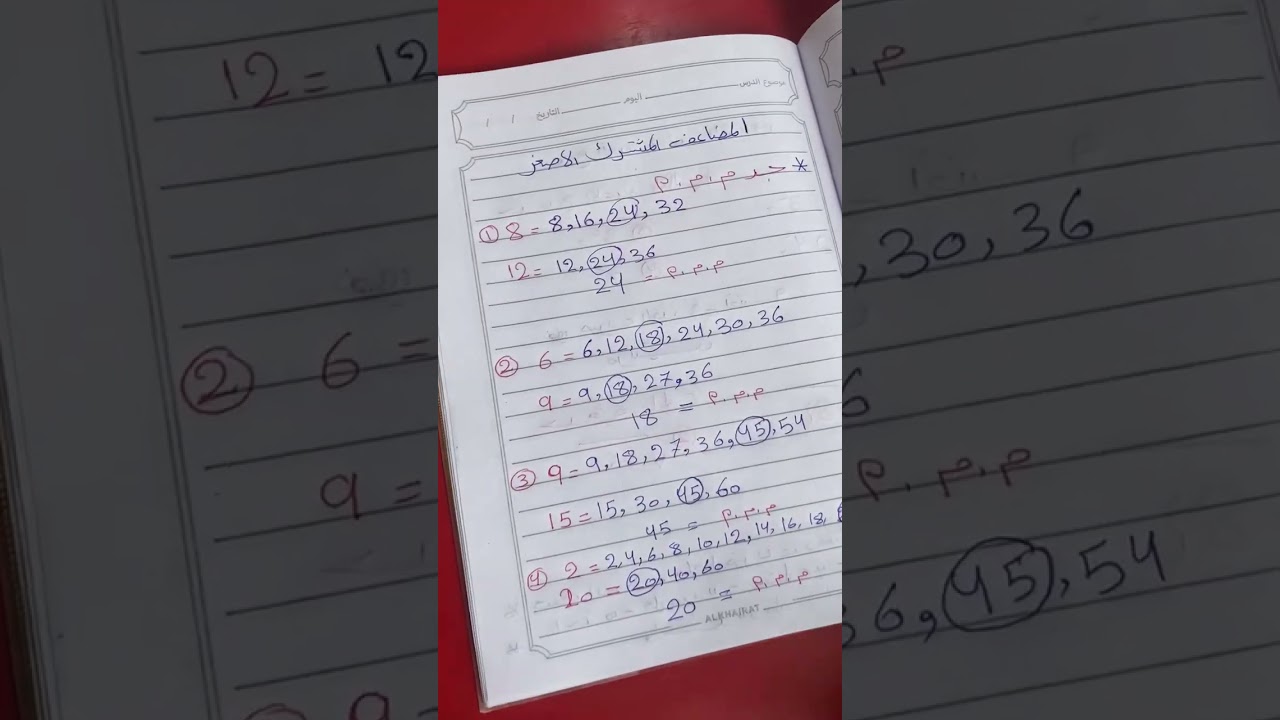 موضوع الدرس اليوم التاريخ / /
المضاعف المشترك الاصغر
* جد م.م.م
① 8 = 8, 16, 24, 32
12 = 12, 24, 36
24 = م.م.م
② 6 = 6, 12, 18, 24, 30, 36
9 = 9, 18, 27, 36
18 = م.م.م
③ 9 = 9, 18, 27, 36, 45, 54
15 = 15, 30, 45, 60
45 = م.م.م
④ 2 = 2, 4, 6, 8, 10, 12, 14, 16, 18,
20 = 20, 40, 60
20 = م.م.م
ALKHAIRAT